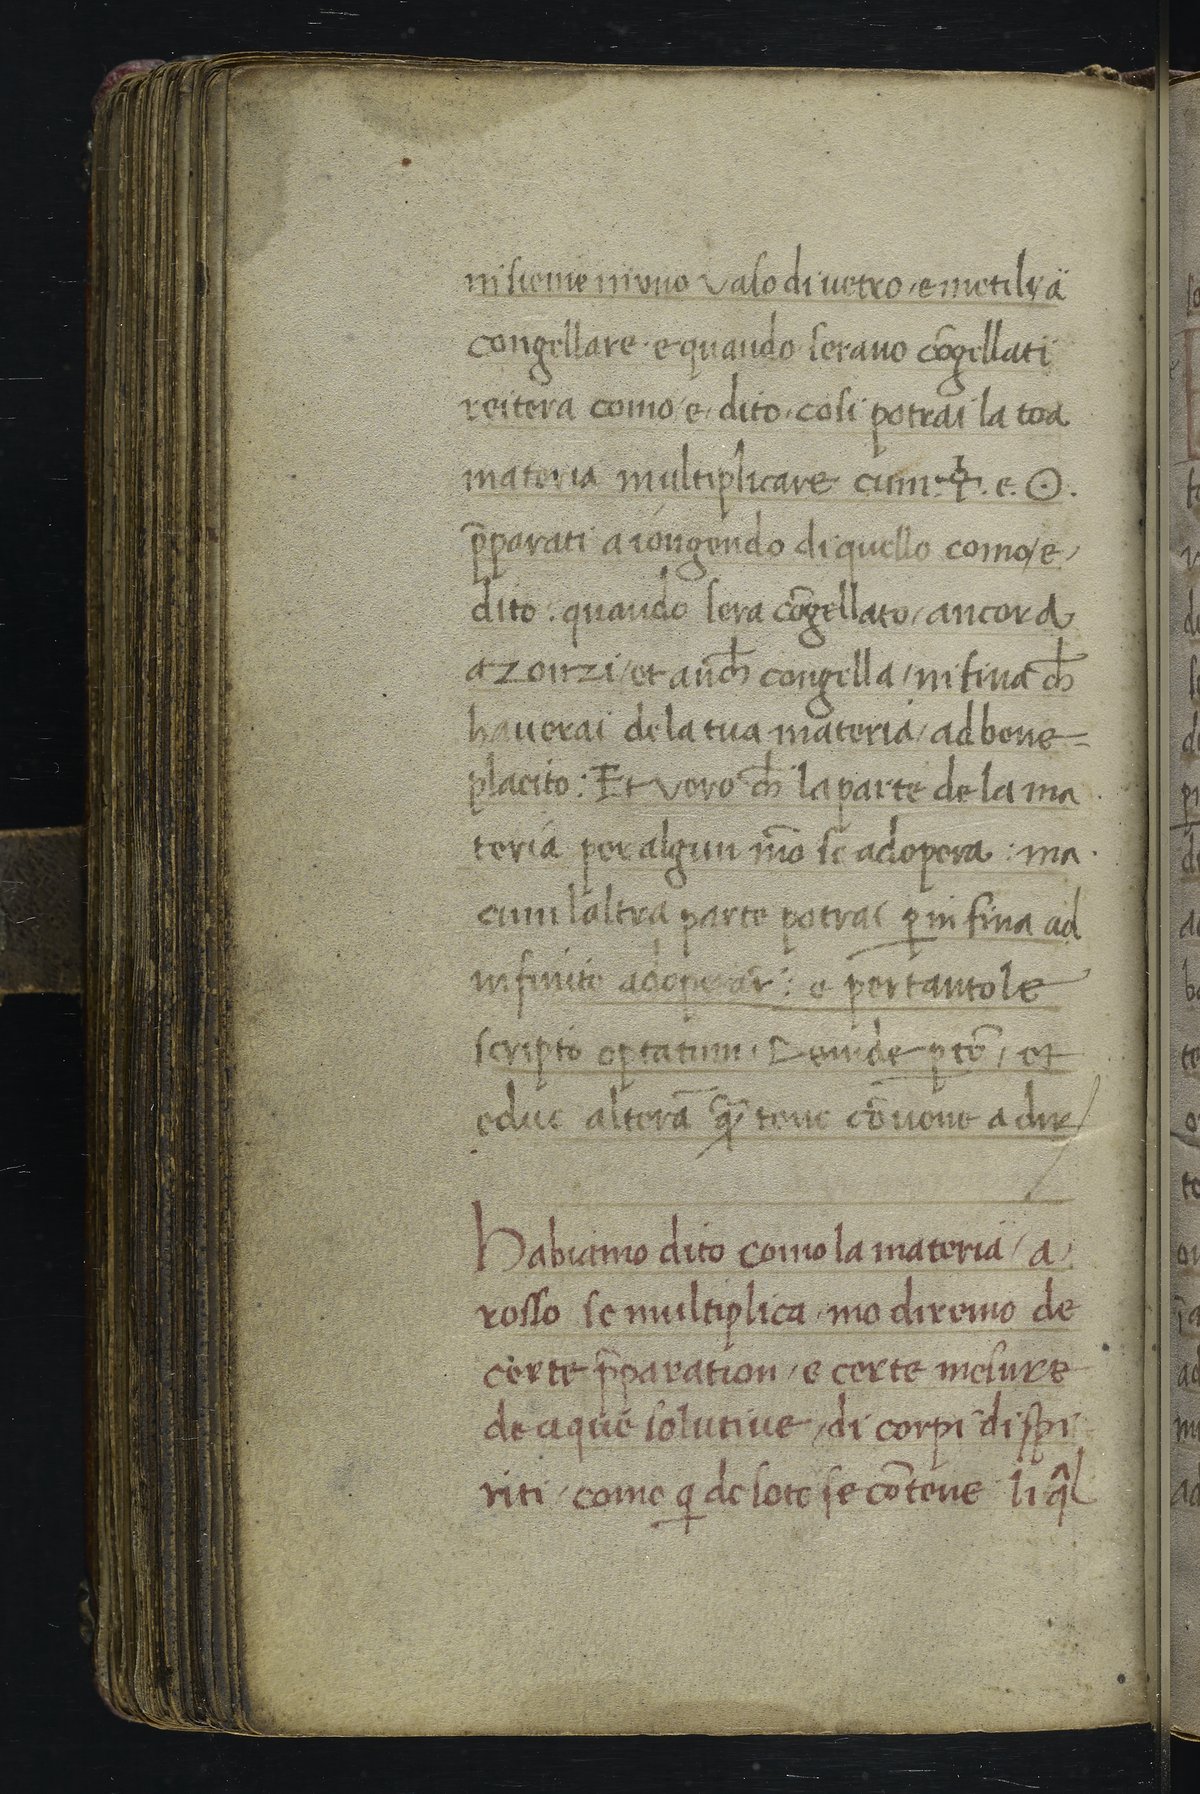 insieme in vno vaso di uetro / e metili ӓ
congellare · e quando serano cōgellati
reitera como / e / dito · cosi potrai la toa
materia multiplicare cum · ☿ · e · ☉ ·
p̄parati a iongendo di quello como / e /
dito : quando sera cōgellato / ancora
azonzi / et anch̄ congella / in fina ch̄
hauerai de la tua materia / ad bene=
placito : Et vero ch̄ la parte de la ma
teria per algun mō se adopera : ma
cum laltra parte potrai ꝑ in fina ad
infinito adoperar : e pertanto le
scripto optatum · Deinde ꝑtē / et
educ alterā tene cōuene a dir /
Habiamo dito como la materiӓ / a /
rosso se multiplica / mo diremo de
certe p̄paration / e certe mesure
de aque solutiue / di corpi di spi
riti / come ꝗ de soto se cōtene li ꝗ̄l